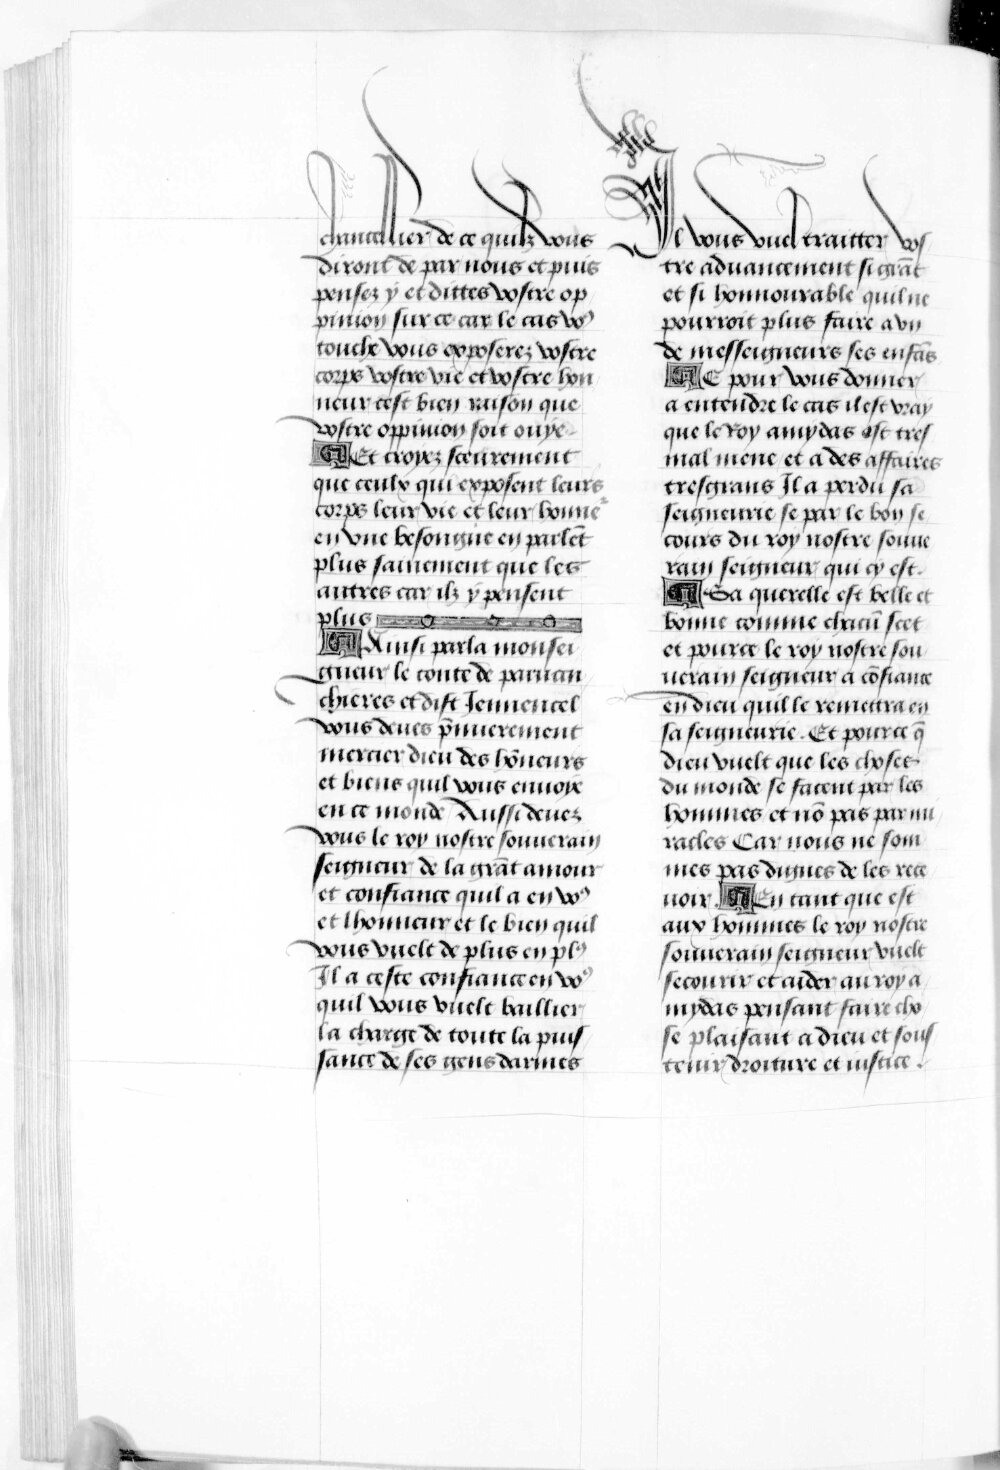 chancellier de ce quilz vous
diront de par nous et puis
pensez y et dittes vostre op
pinion sur ce car le cas vo⁹
touche vous exposerez vostre
corps vostre vie et vostre hon
neur cest bien raison que
vostre oppinion soit ouye
Et croyez seurement
que ceulx qui exposent leurs
corps leur vie et leur honne²
en vne besongne en parlēt
plus sainement que les
autres car ilz y pensent
plus
Ainsi parla monsei
gneur le conte de paruan
chieres et dist Jennencel
vous deues p̄mierement
mercier dieu des hōneurs
et biens quil vous enuoye
en ce monde Aussi deuez
vous le roy nostre souuerain
seigneur de la grāt amour
et confiance quil a en vo⁹
et lhonneur et le bien quil
vous vuelt de plus en pl⁹
Il a ceste confiance en vo⁹
quil vous vuelt baillier
la charge de toute la puis
sance de ses gens darmes
Il vous vuel traitter vos
tre aduancement si grāt
et si honnourable quil ne
pourroit plus faire a vn
de messeigneurs ses enfās
Et pour vous donner
a entendre le cas il est vray
que le Roy amydas est tres
mal mene et a des affaires
tresgrans Il a perdu sa
seigneurie se par le bon se
cours du roy nostre souue
rain seigneur qui cy est.
Sa querelle est belle et
bonne comme chacū scet
et pource le roy nostre sou
uerain seigneur a cōfiance
en dieu quil le remettra en
sa seigneurie. Et pource q̄
dieu vuelt que les choses
du monde se facent par les
hommes et nō pas par mi
racles Car nous ne som
mes pas dignes de les rece
uoir. En tant que est
aux hommes le roy nostre
souuerain seigneur vuelt
secourir et aider au roy a
mydas pensant faire cho
se plaisant a dieu et sous
tenir droiture et iustice.